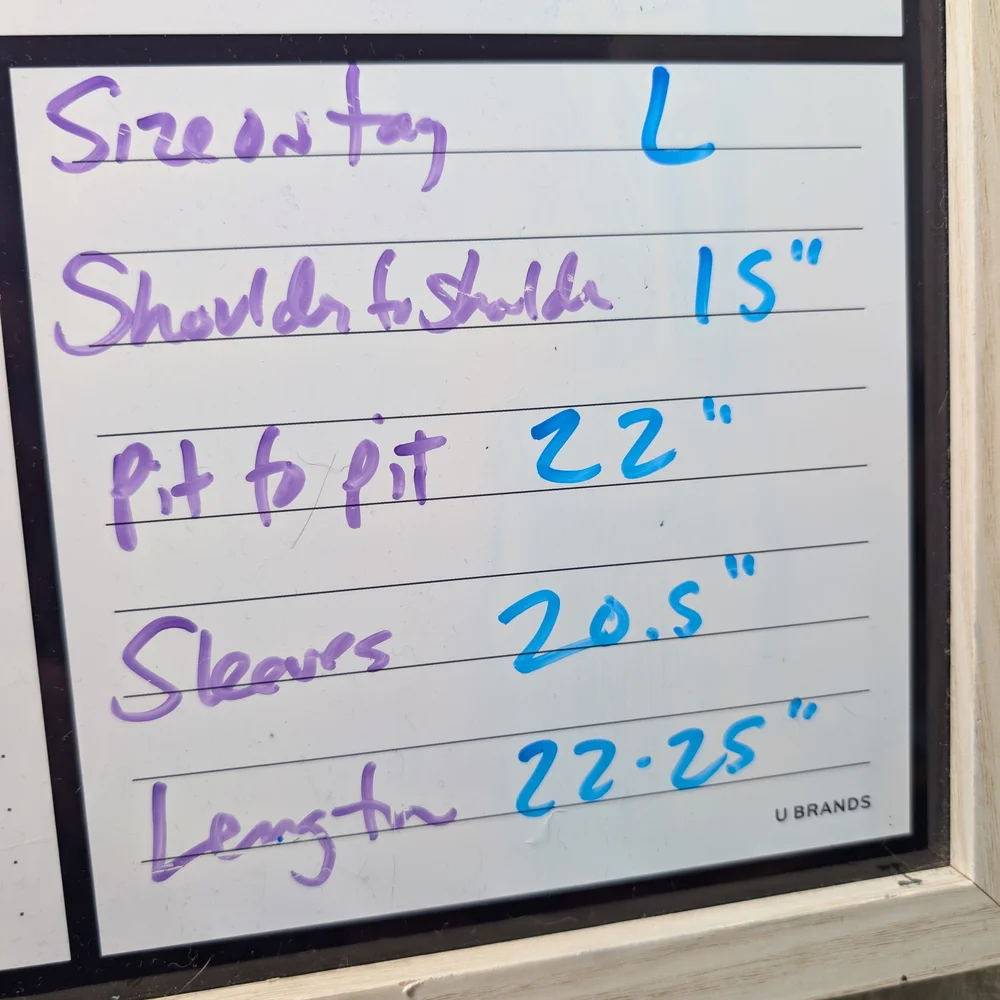 Size on tag L
Shoulder to shoulder 15"
Pit to pit 22"
Sleeves 20.5"
Length 22.25"
U BRANDS